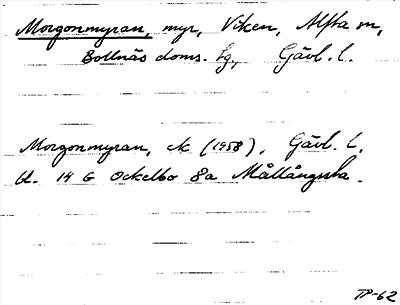 Morgonmyran, myr, Viken, Alfta sn,
Bollnäs doms. lg., Gävl. l.
Morgonmyran, ek (1958), Gävl. l.
bl. 14 G Ockelbo 8a Mållångssta.
TP-62